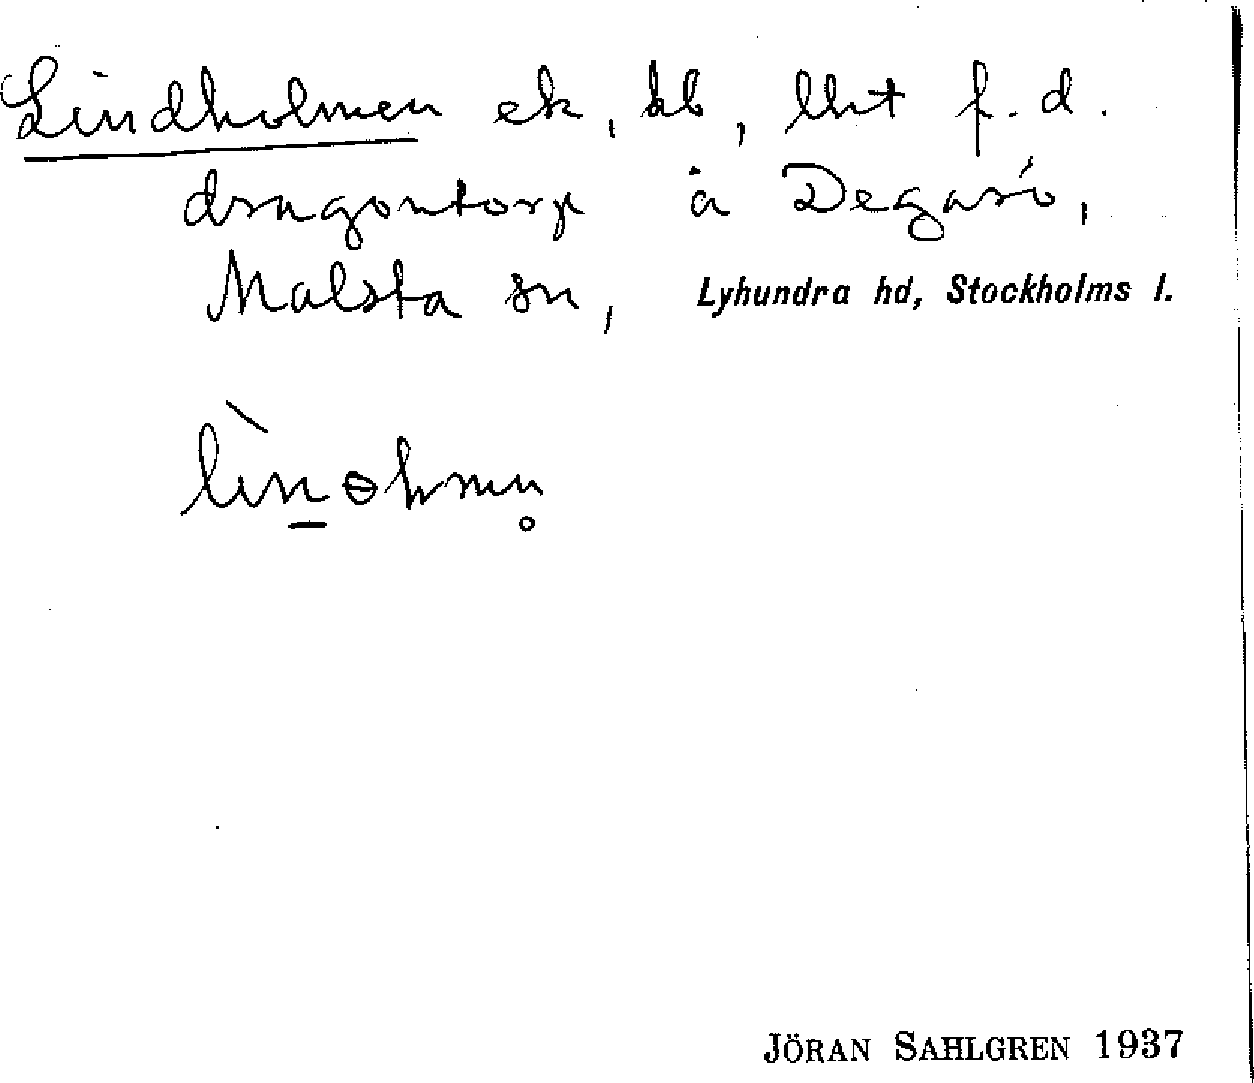 Lindholmen ek, kb, lht f.d.
dragontorp å Degarö,
Malsta sn, Lyhundra hd, Stockholms l.
JÖRAN SAHLGREN 1937